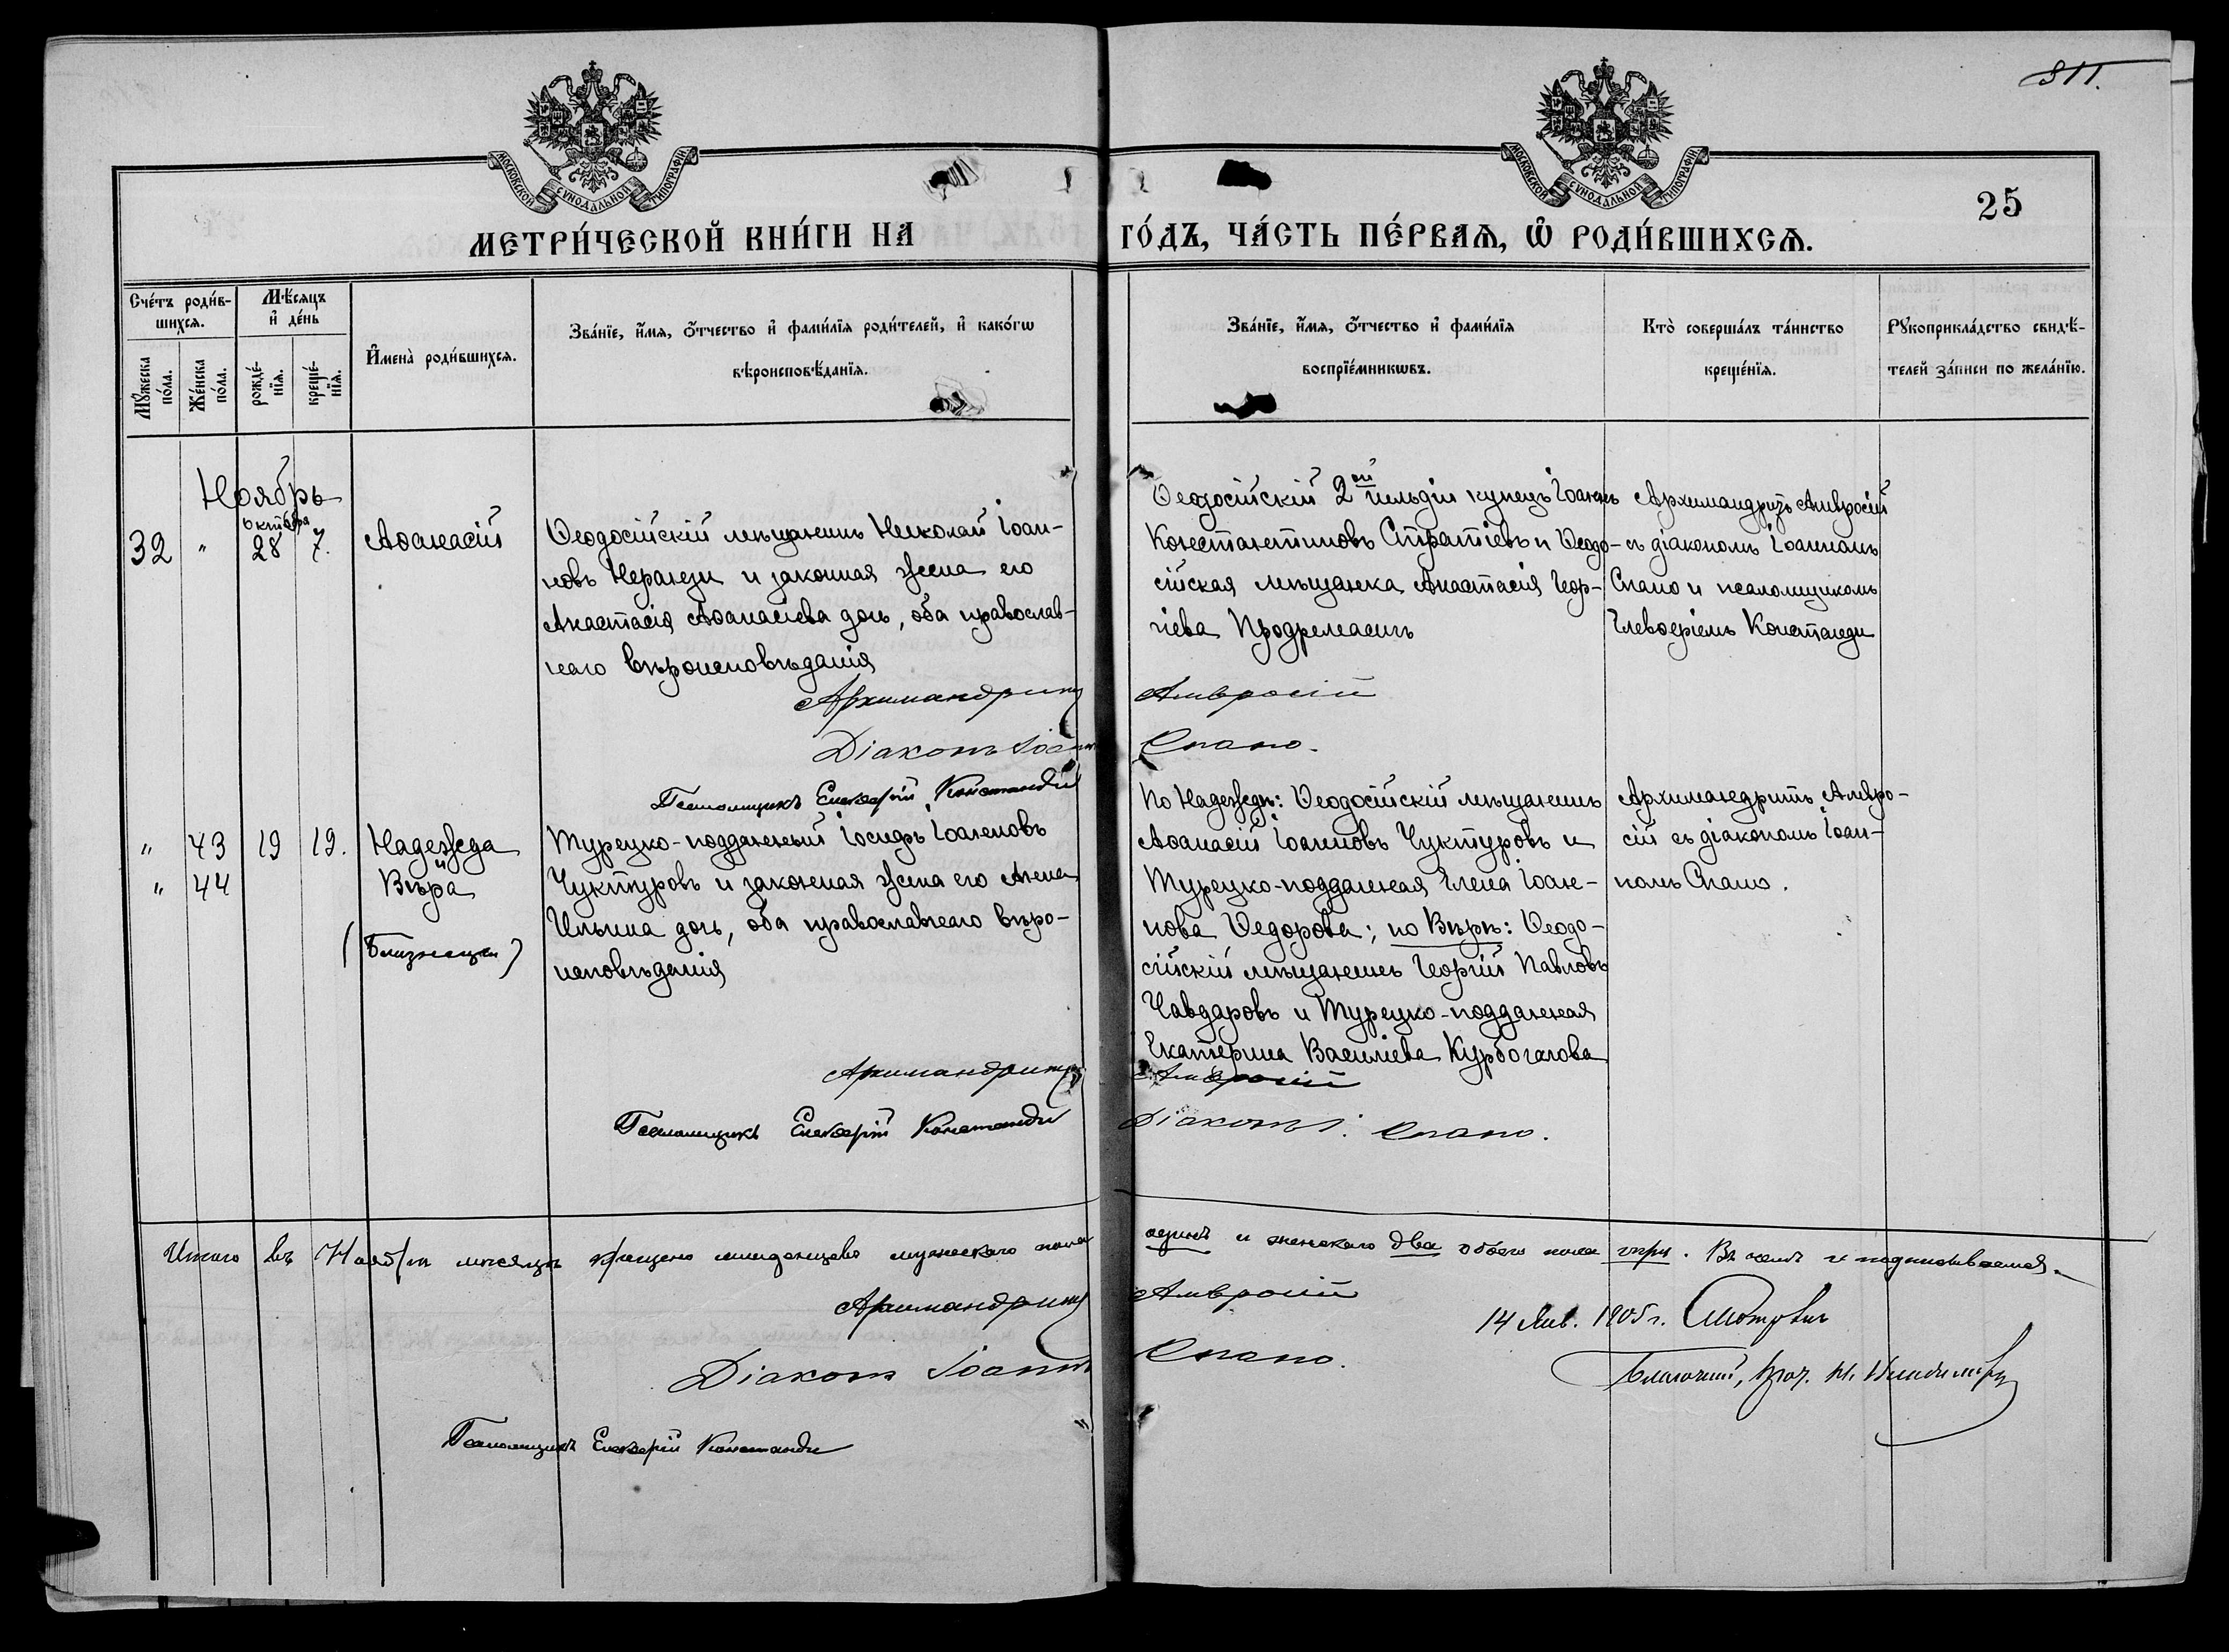 811.
МОСКОВСКОЙ СѴНОДАЛЬНОЙ ТИПОГРАФІИ
МОСКОВСКОЙ СѴНОДАЛЬНОЙ ТИПОГРАФІИ
25
МЕТРИ́ЧЕСКОЙ КНИ́ГИ НА ГО́ДЪ, ЧА́СТЬ ПЕ́РВАѦ, Ѡ҆ РОДИ́ВШИХСѦ.
Сче́тъ роди́в-
шихсѧ.
Мꙋ́жеска по́ла.
Же́нска по́ла.
Мѣ́сяцъ
и҆ де́нь
рожде́-
нїѧ.
креще́-
нїѧ.
И҆мена̀ роди́вшихсѧ.
Зва́нїе, и҆́мѧ, ѻ҆́тчество и҆ фами́лїѧ роди́телей, и҆ како́гѡ
вѣроисповѣ́данїѧ.
Зва́нїе, и҆́мѧ, ѻ҆́тчество и҆ фами́лїѧ
воспрїе́мникѡвъ.
Кто̀ соверша́лъ та́инство
креще́нїѧ.
Рꙋкоприкла́дство свидѣ́-
телей за́писи по жела́нїю.
Ноябрь
октября
32 " 28 7. Аѳанасій
Ѳеодосійскій мѣщанинъ Николай Іоан-
новъ Неранзи и законная жена его
Анастасія Аѳанасіева дочь, оба православ-
наго вѣроисповѣданія
Ѳеодосійскій 2ой гильдіи купецъ Іоаннъ
Константиновъ Стратіевъ и Ѳеодо-
сійская мѣщанка Анастасія Геор-
гіева Продремасигъ
Архимандритъ Амвросій
съ діакономъ Іоанномъ
Спано и псаломщикомъ
Елевѳеріемъ Констанди
Архимандритъ Амвросій
Діаконъ Іоаннъ Спано.
Псаломщикъ Елевѳерій Констанди
" 43 19 19. Надежда
и
" 44 Вѣра
(Близнецы)
Турецко-подданный Іосифъ Іоанновъ
Чуктуровъ и законная жена его Анна
Ильина дочь, оба православнаго вѣро-
исповѣданія
По Надеждѣ: Ѳеодосійскій мѣщанинъ
Аѳанасій Іоанновъ Чуктуровъ и
Турецко-подданная Елена Іоан-
нова Ѳедорова; по Вѣрѣ: Ѳеодо-
сійскій мѣщанинъ Георгій Павловъ
Чавдаровъ и Турецко-подданная
Екатерина Василіева Курбогалова
Архимандритъ Амвро-
сій съ діакономъ Іоан-
номъ Спано.
Архимандритъ Амвросій
Псаломщикъ Елевѳерій Констанди Діаконъ І. Спано.
Итого въ Ноябрѣ мѣсяцѣ крещено младенцевъ мужескаго пола одинъ и женскаго два обоего пола три. Въ чемъ и подписываемся.
Архимандритъ Амвросій
14 Янв. 1905 г. Смотрѣлъ
Діаконъ Іоаннъ Спано.
Благочинный, прот.
Псаломщикъ Елевѳерій Констанди